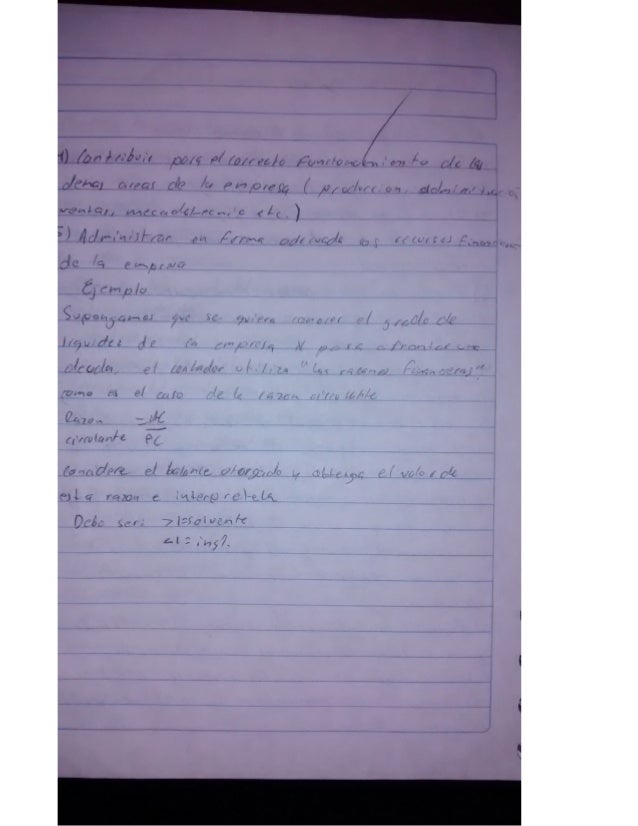 4) Contribuir para el correcto funcionamiento de las
demas areas de la empresa ( produccion, administracion
ventas, mercadotecnia etc.)
5) Administrar en forma adecuada los recursos financieros
de la empresa
Ejemplo
Supongamos que se quiera conocer el grado de
liquidez de la empresa X para afrontar una
deuda, el contador utiliza "las razones financieras"
como es el caso de la razon circulante
Razon = AC
circulante PC
Considere el balance otorgado y obtenga el valor de
esta razon e interpretela
Debo ser: >1=solvente
<1= ins?.